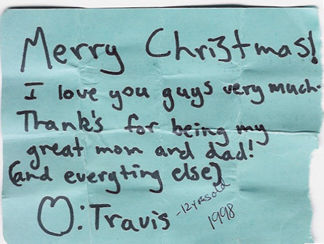 Merry Christmas!
I love you guys very much.
Thank's for being my
great mom and dad!
(and everyting else)
♡: Travis -12 yrs old
1998